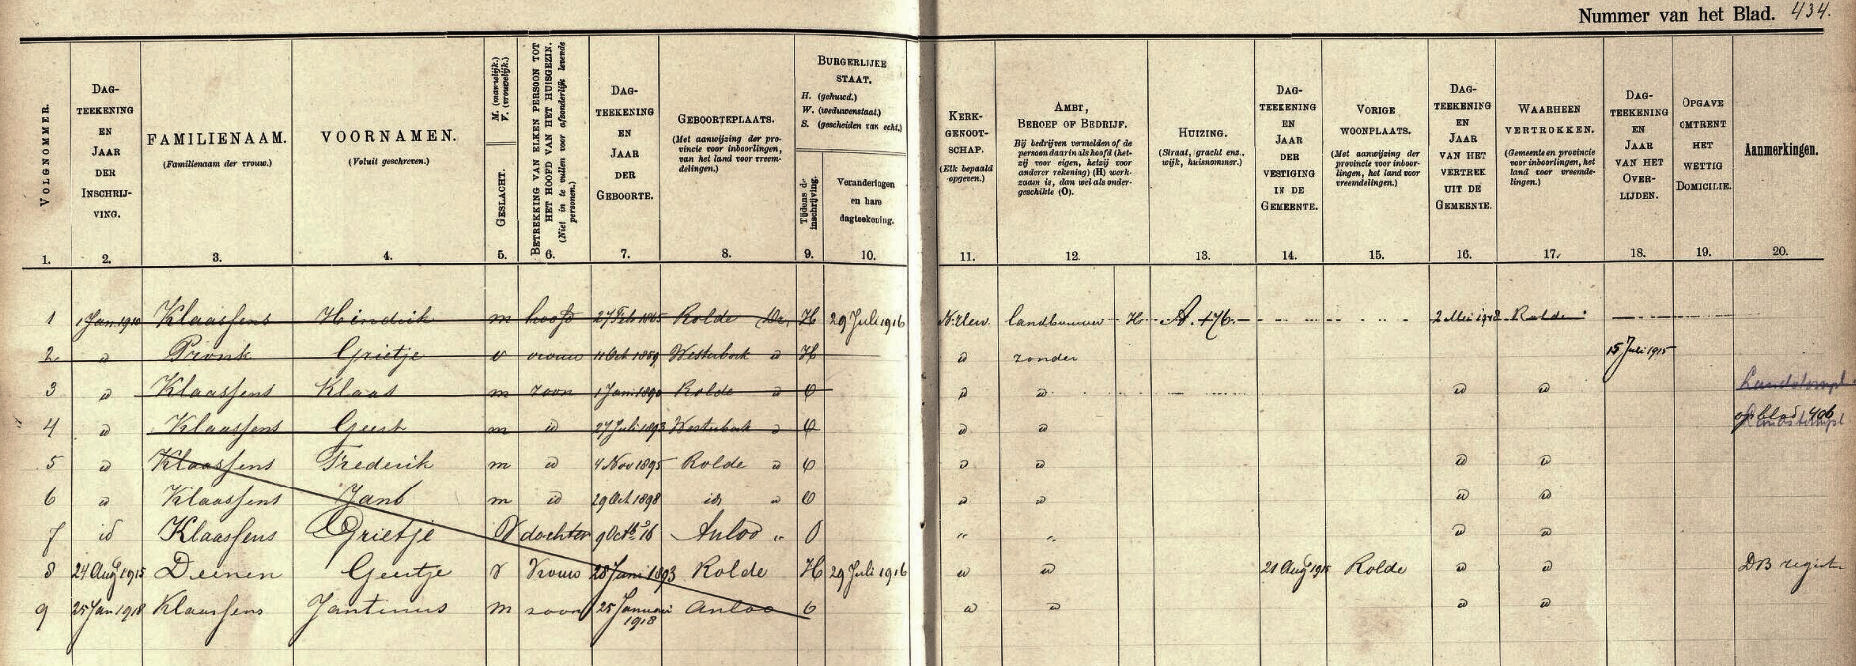 Nummer van het Blad. 434.
VOLGNOMMER.
DAG-
TEEKENING
EN
JAAR
DER
INSCHRIJ-
VING.
FAMILIENAAM.
(Familienaam der vrouw.)
VOORNAMEN.
(Voluit geschreven.)
M. (mannelijk.)
V. (vrouwelijk.)
GESLACHT.
BETREKKING VAN ELKEN PERSOON TOT
HET HOOFD VAN HET HUISGEZIN.
(Niet in te vullen voor afzonderlijk levende
personen.)
DAG-
TEEKENING
EN
JAAR
DER
GEBOORTE.
GEBOORTEPLAATS.
(Met aanwijzing der pro-
vincie voor inboorlingen,
van het land voor vreem-
delingen.)
BURGERLIJKE
STAAT.
H. (gehuwd.)
W. (weduwenstaat.)
S. (gescheiden van echt.)
Tijdens de
inschrijving.
Veranderingen
en hare
dagteekening.
KERK-
GENOOT-
SCHAP.
(Elk bepaald
opgeven.)
AMBT,
BEROEP OF BEDRIJF.
Bij bedrijven vermelden of de
persoon daarin als hoofd (het-
zij voor eigen, hetzij voor
anderer rekening) (H) werk-
zaam is, dan wel als onder-
geschikte (O).
HUIZING.
(Straat, gracht enz.,
wijk, huisnommer.)
DAG-
TEEKENING
EN
JAAR
DER
VESTIGING
IN DE
GEMEENTE.
VORIGE
WOONPLAATS.
(Met aanwijzing der
provincie voor inboor-
lingen, het land voor
vreemdelingen.)
DAG-
TEEKENING
EN
JAAR
VAN HET
VERTREK
UIT DE
GEMEENTE.
WAARHEEN
VERTROKKEN.
(Gemeente en provincie
voor inboorlingen, het
land voor vreemde-
lingen.)
DAG-
TEEKENING
EN
JAAR
VAN HET
OVER-
LIJDEN.
OPGAVE
OMTRENT
HET
WETTIG
DOMICILIE.
Aanmerkingen.
1. 2. 3. 4. 5. 6. 7. 8. 9. 10. 11. 12. 13. 14. 15. 16. 17. 18. 19. 20.
1 1 Jan 1910 Klaassens Hindrik m hoofd 27 Feb 1865 Rolde Dr. H 29 Juli 1916 N. Herv landbouwer H A 176. 2 Mei 1918 Rolde
2 id Pronk Grietje v vrouw 11 Oct 1859 Westerbork id H id zonder 15 Juli 1915
3 id Klaassens Klaas m zoon 1 Jan 1890 Rolde id O id id id id
4 id Klaassens Geert m id 27 Juli 1893 Westerbork id O id id op blad 406
5 id Klaassens Frederik m id 4 Nov 1895 Rolde id O id id id id
6 id Klaassens Jans m id 29 Oct 1898 id id O id id id id
7 id Klaassens Grietje V dochter 9 Octb 16 Anloo " O " " id id
8 24 Aug 1915 Deinen Geertje V Vrouw 28 Juni 1893 Rolde H 29 Juli 1916 id id 21 Aug 1915 Rolde id id DB regist
9 25 Jan 1918 Klaassens Jantinus m zoon 25 Januari Anloo O id id id id
1918